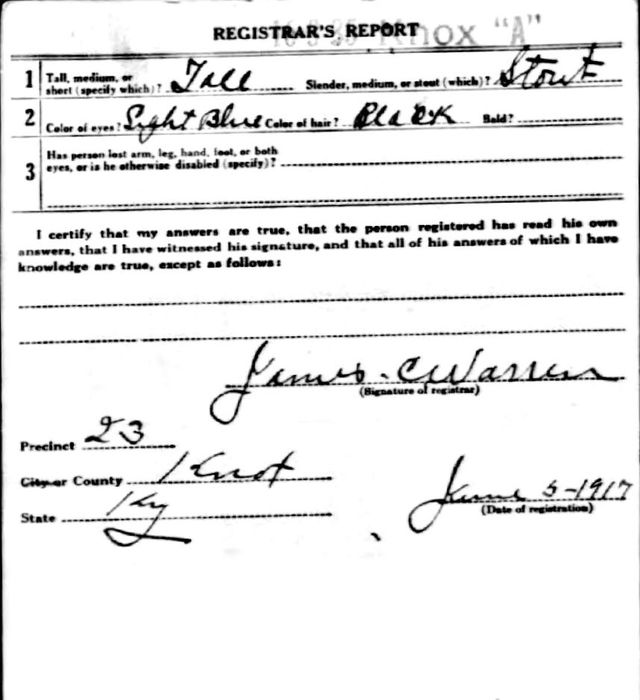 REGISTRAR'S REPORT Knox "A"
1 Tall, medium, or short (specify which)? Tall Slender, medium, or stout (which)? Stout
2 Color of eyes? Light Blue Color of hair? Black Bald?
3 Has person lost arm, leg, hand, foot, or both
eyes, or is he otherwise disabled (specify)?
I certify that my answers are true, that the person registered has read his own
answers, that I have witnessed his signature, and that all of his answers of which I have
knowledge are true, except as follows:
James. C Warren
(Signature of registrar)
Precinct 23
City or County Knot
State Ky
June 5-1917
(Date of registration)